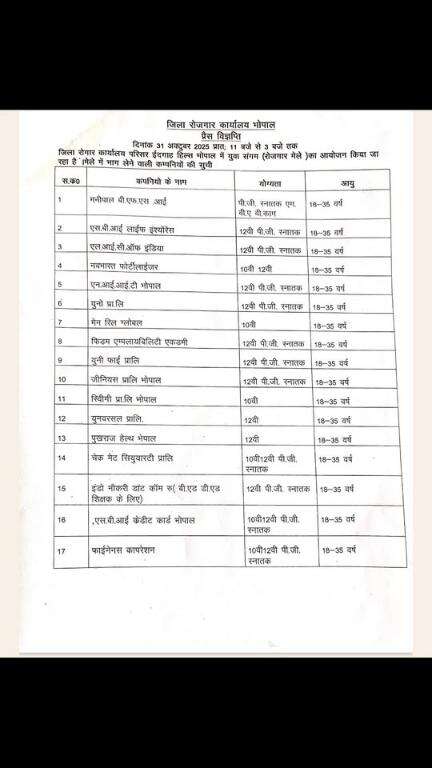 जिला रोजगार कार्यालय भोपाल
प्रैस विज्ञप्ति
दिनांक 31 अक्टुबर 2025 प्रातः 11 बजे से 3 बजे तक
जिला रोगार कार्यालय परिसर ईदगाह हिल्स भोपाल में युवक संगम (रोजगार मेले )का आयोजन किया जा
रहा है ।मेले में भाग लेने वाली कम्पनियों की सुची
स.क0 कंपनियो के नाम योग्यता आयु
1 मनीपाल बी.एफ.एस .आई पी.जी. स्नातक एम. 18–35 वर्ष
बी ए बी.काम
2 एस.बी.आई लाईफ इंश्योरेंस 12वी पी.जी. स्नातक 18–35 वर्ष
3 एल.आई.सी.ऑफ इंडिया 12वी पी.जी. स्नातक 18–35 वर्ष
4 नवभारत फोर्टीलाईजर 10वी 12वी 18–35 वर्ष
5 एन.आई.आई.टी भोपाल 12वी पी.जी. स्नातक 18–35 वर्ष
6 युनो प्रा.लि 12वी पी.जी. स्नातक 18–35 वर्ष
7 मेन रिल ग्लोबल 10वी 18–35 वर्ष
8 फिडम एम्पलायबिलिटी एकडमी 12वी पी.जी. स्नातक 18–35 वर्ष
9 युनी फाई प्रालि 12वी पी.जी. स्नातक 18–35 वर्ष
10 जीनियस प्रालि भोपाल 12वी पी.जी. स्नातक 18–35 वर्ष
11 स्विीमी प्रा.लि भोपाल 10वी 18–35 वर्ष
12 युनवरसल प्रालि. 12वी 18–35 वर्ष
13 पुखराज हेल्थ भेपाल 12वी 18–35 वर्ष
14 चेक मेट सियुवारटी प्रालि 10वी12वी पी.जी. 18–35 वर्ष
स्नातक
15 इंडो नौकरी डाट कॉम रु( बी.एड डी.एड 12वी पी.जी. स्नातक 18–35 वर्ष
शिक्षक के लिए)
16 ,एस.बी.आई क्रेडीट कार्ड भोपाल 10वी12वी पी.जी. 18–35 वर्ष
स्नातक
17 फाईनेनस कापरेशन 10वी12वी पी.जी. 18–35 वर्ष
स्नातक